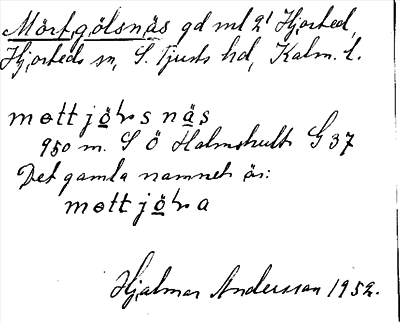 Mörtgölsnäs gd ml 2¹ Hjorted,
Hjorteds sn, S. Tjusts hd, Kalm. l.
mettjöls näs
950 m. S Ö Holmshult G 37
Det gamla namnet är:
mettjöla
Hjalmar Andersson 1952.